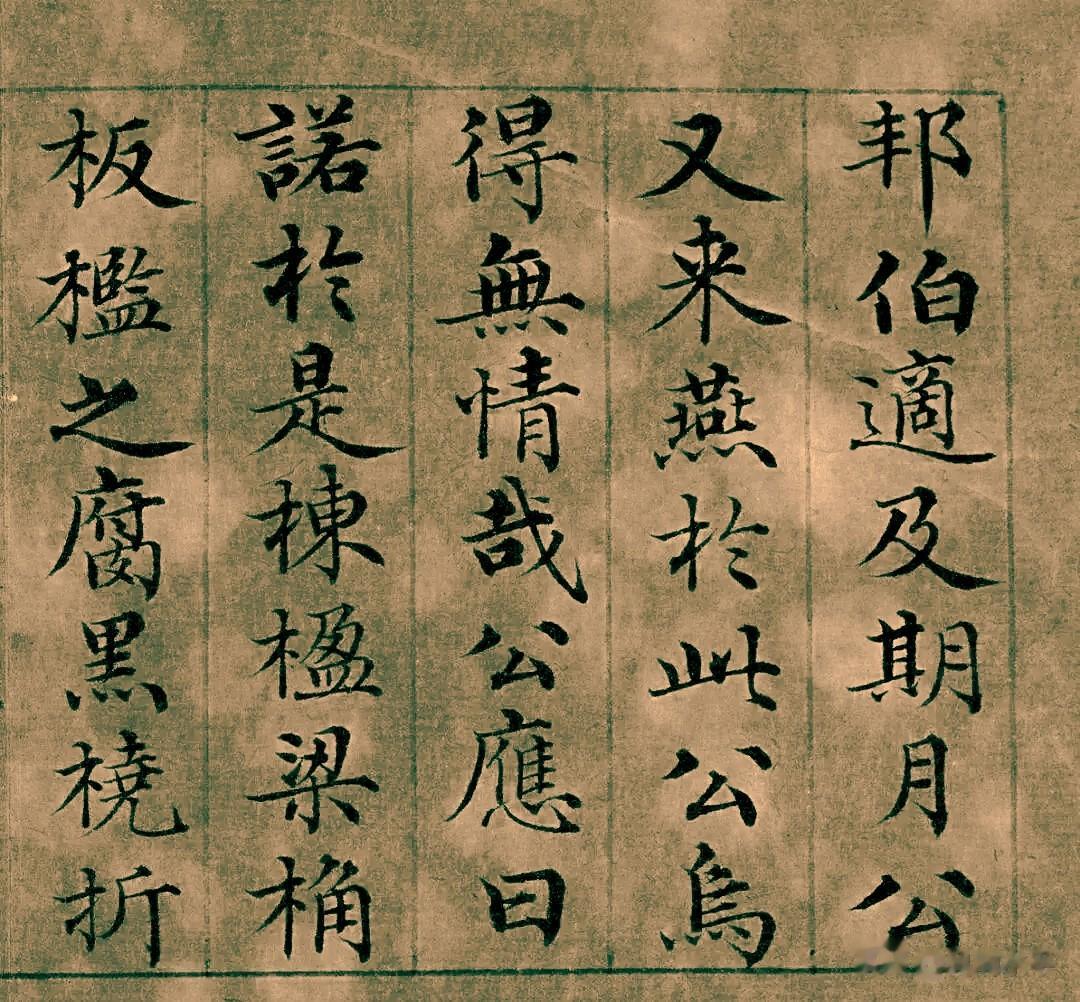 邦伯適及期月公
又来燕於此公烏
得無情哉公應曰
諾於是棟楹梁桷
板檻之腐黑橈折